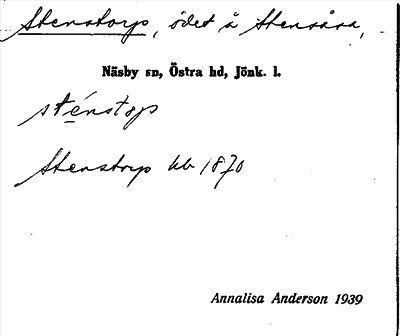 Stenstorp, ödet å Stensåsa,
Näsby sn, Östra hd, Jönk. l.
sténstop
Stenstorp kb 1870
Annalisa Anderson 1939